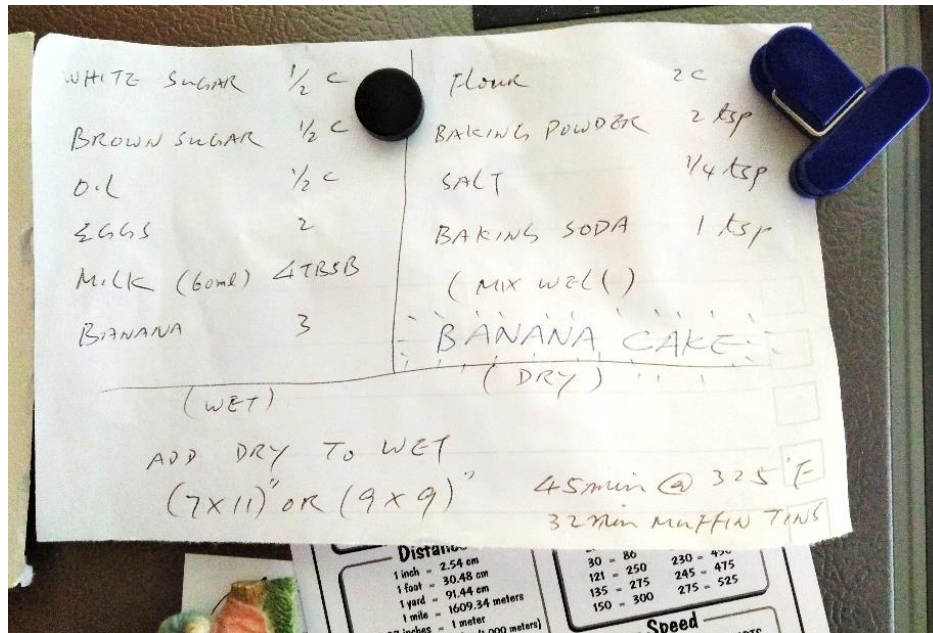 WHITE SUGAR 1/2 C
BROWN SUGAR 1/2 C
OIL 1/2 C
EGGS 2
MILK (60ml) 4TBSB
BANANA 3
(WET)
FLOUR 2C
BAKING POWDER 2 tsp
SALT 1/4 tsp
BAKING SODA 1 tsp
(MIX WELL)
BANANA CAKE
(DRY)
ADD DRY TO WET
(7X11)" OR (9X9)"
45min @ 325°F
32min MUFFIN TINS
Distance
1 inch = 2.54 cm
1 foot = 30.48 cm
1 yard = 91.44 cm
1 mile = 1609.34 meters
inches = 1 meter
(1,000 meters)
30 - 86
121 - 250
135 - 275
150 - 300
230 - 450
245 - 475
275 - 525
Speed